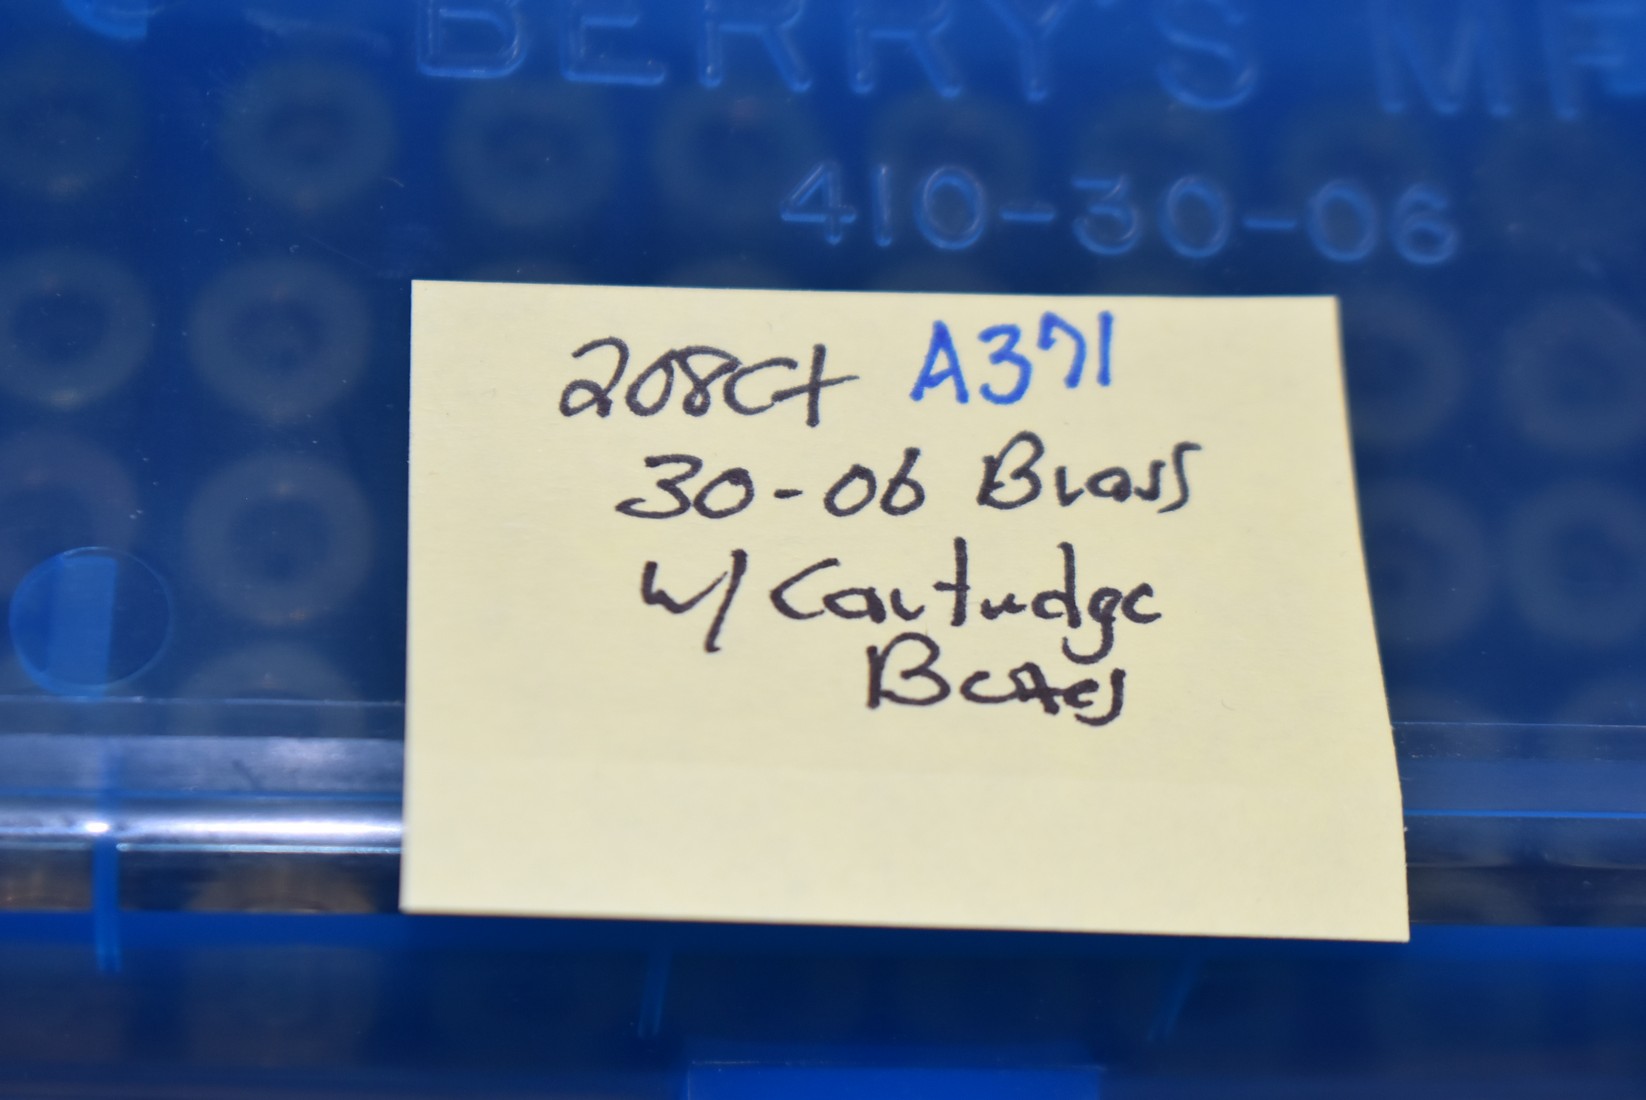 BERRY'S MF
410-30-06
208ct A371
30-06 Brass
w/ Cartridge
Boxes